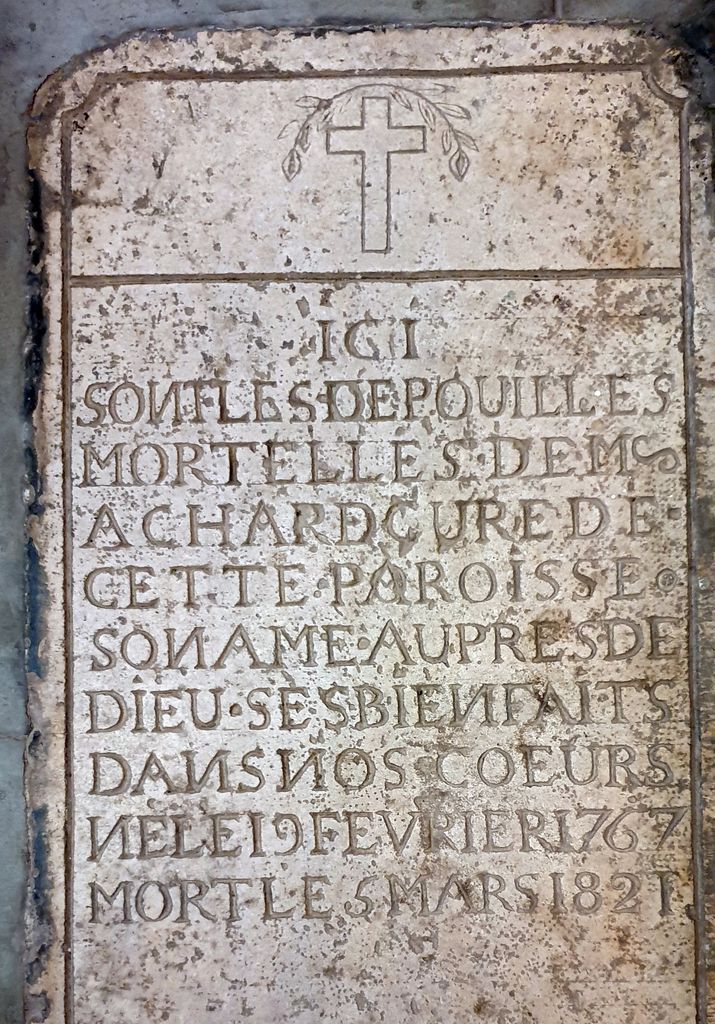 ICI
SONT LES·DEPOUILLES
MORTELLES·DE MS
ACHARD ÇURE DE·
CETTE·PAROISSE·
SON AME·AUPRES DE
DIEU·SES BIENFAITS
DANS NOS COEURS
NE LE 19 FEVRIER 1767
MORT LE 5 MARS 1821